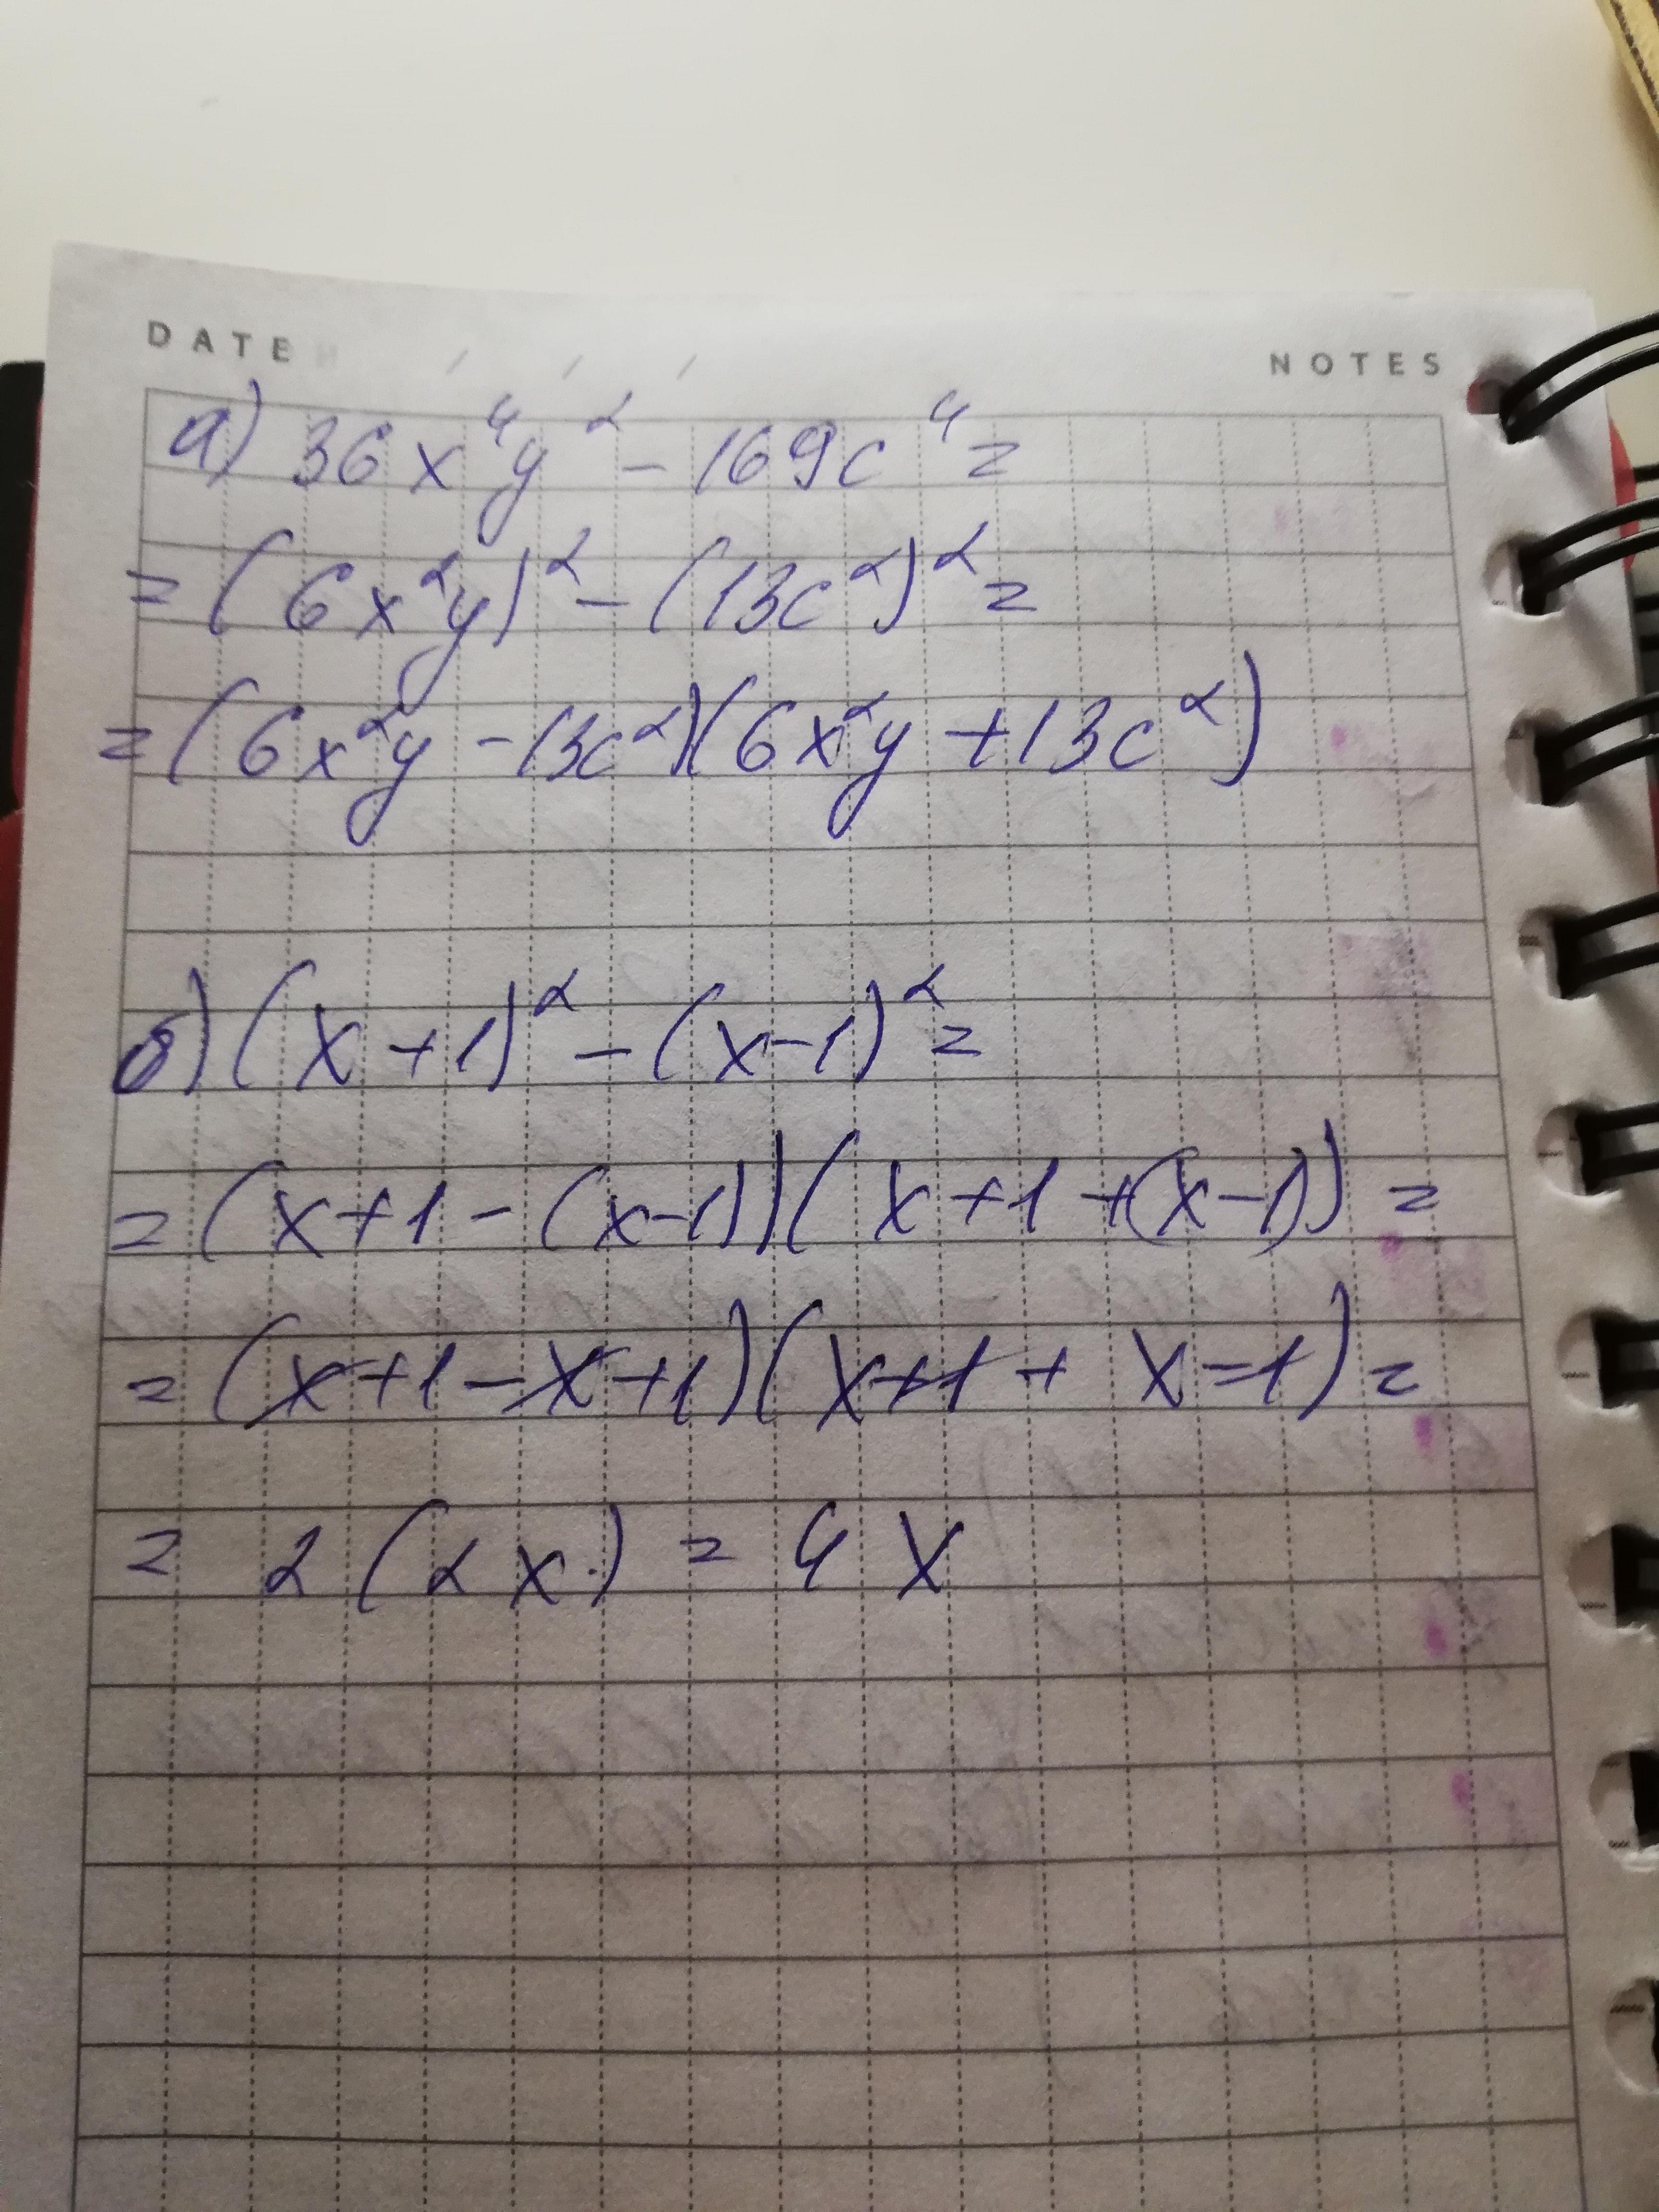 DATE / / / NOTES
а) 36x⁴y² - 169c⁴ =
= (6x²y)² - (13c²)² =
= (6x²y - 13c²)(6x²y + 13c²)
б) (x+1)² - (x-1)² =
= (x+1 - (x-1))(x+1 + (x-1)) =
= (x+1-x+1)(x+1+x-1) =
= 2(2x) = 4x